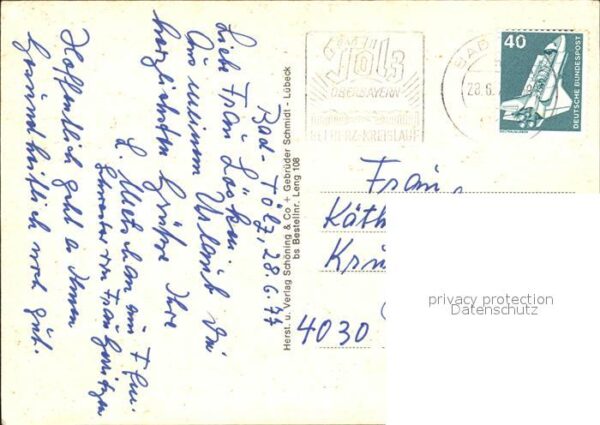 Bad-Tölz, 28.6.77
Liebe Frau
Aus meinem Urlaub die
herzlichsten Grüße Ihre
L.
Schwester von Frau
Hoffentlich geht es Ihnen
Gesundheitlich noch gut.
Herst. u. Verlag Schöning & Co + Gebrüder Schmidt - Lübeck
bs Bestellnr. Leng 108
BAD
TÖLZ
OBERBAYERN
BEI HERZ-KREISLAUF
BAD
28.6.
40
DEUTSCHE BUNDESPOST
Frau
Käth
Krü
4030
privacy protection
Datenschutz